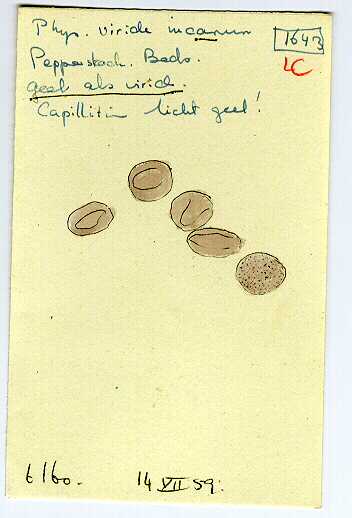 Phys. viride incanum
1643
LC
Pepperstock. Beds.
geel als virid.
Capillitium licht geel!
6160. 14 VII 59.